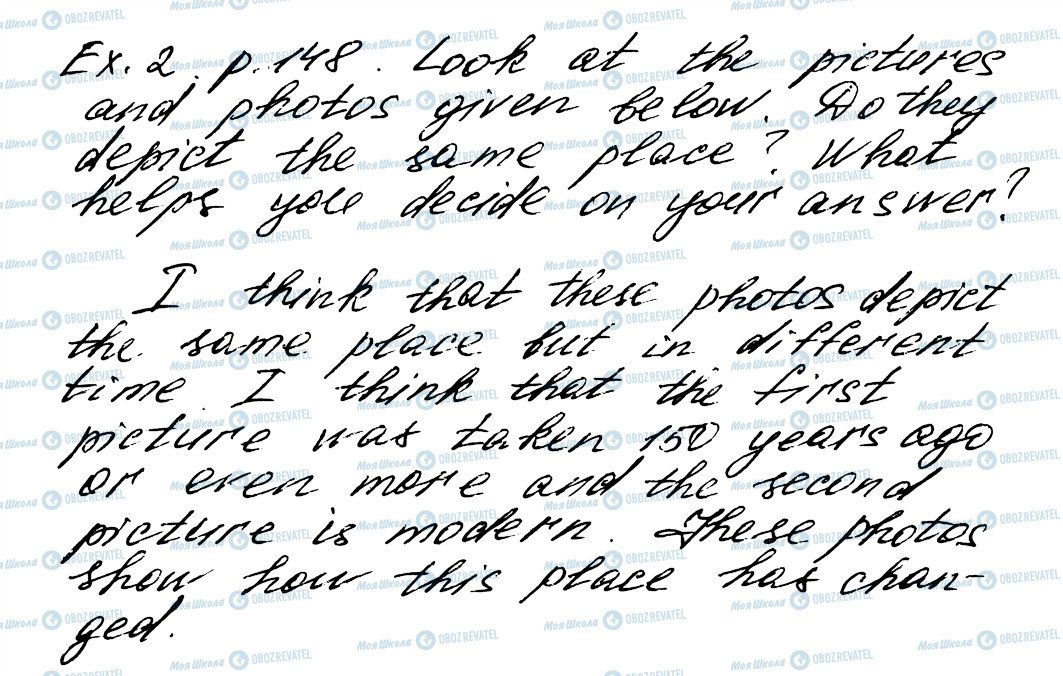 Ex. 2 p. 148. Look at the pictures
and photos given below. Do they
depict the same place? What
helps you decide on your answer?
I think that these photos depict
the same place but in different
time. I think that the first
picture was taken 150 years ago
or even more and the second
picture is modern. These photos
show how this place has chan-
ged.